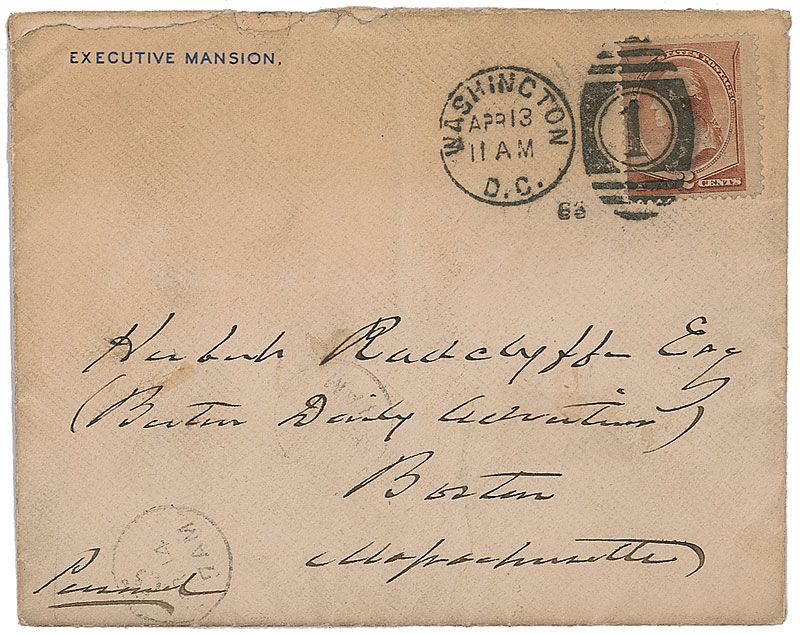 EXECUTIVE MANSION,
WASHINGTON
APR 13
11 AM
D.C.
1
STATES POSTAGE
2 CENTS
Herbert Radclyffe Esq
(Boston Daily Advertiser)
Boston
Massachusetts
Personal
AM
AM